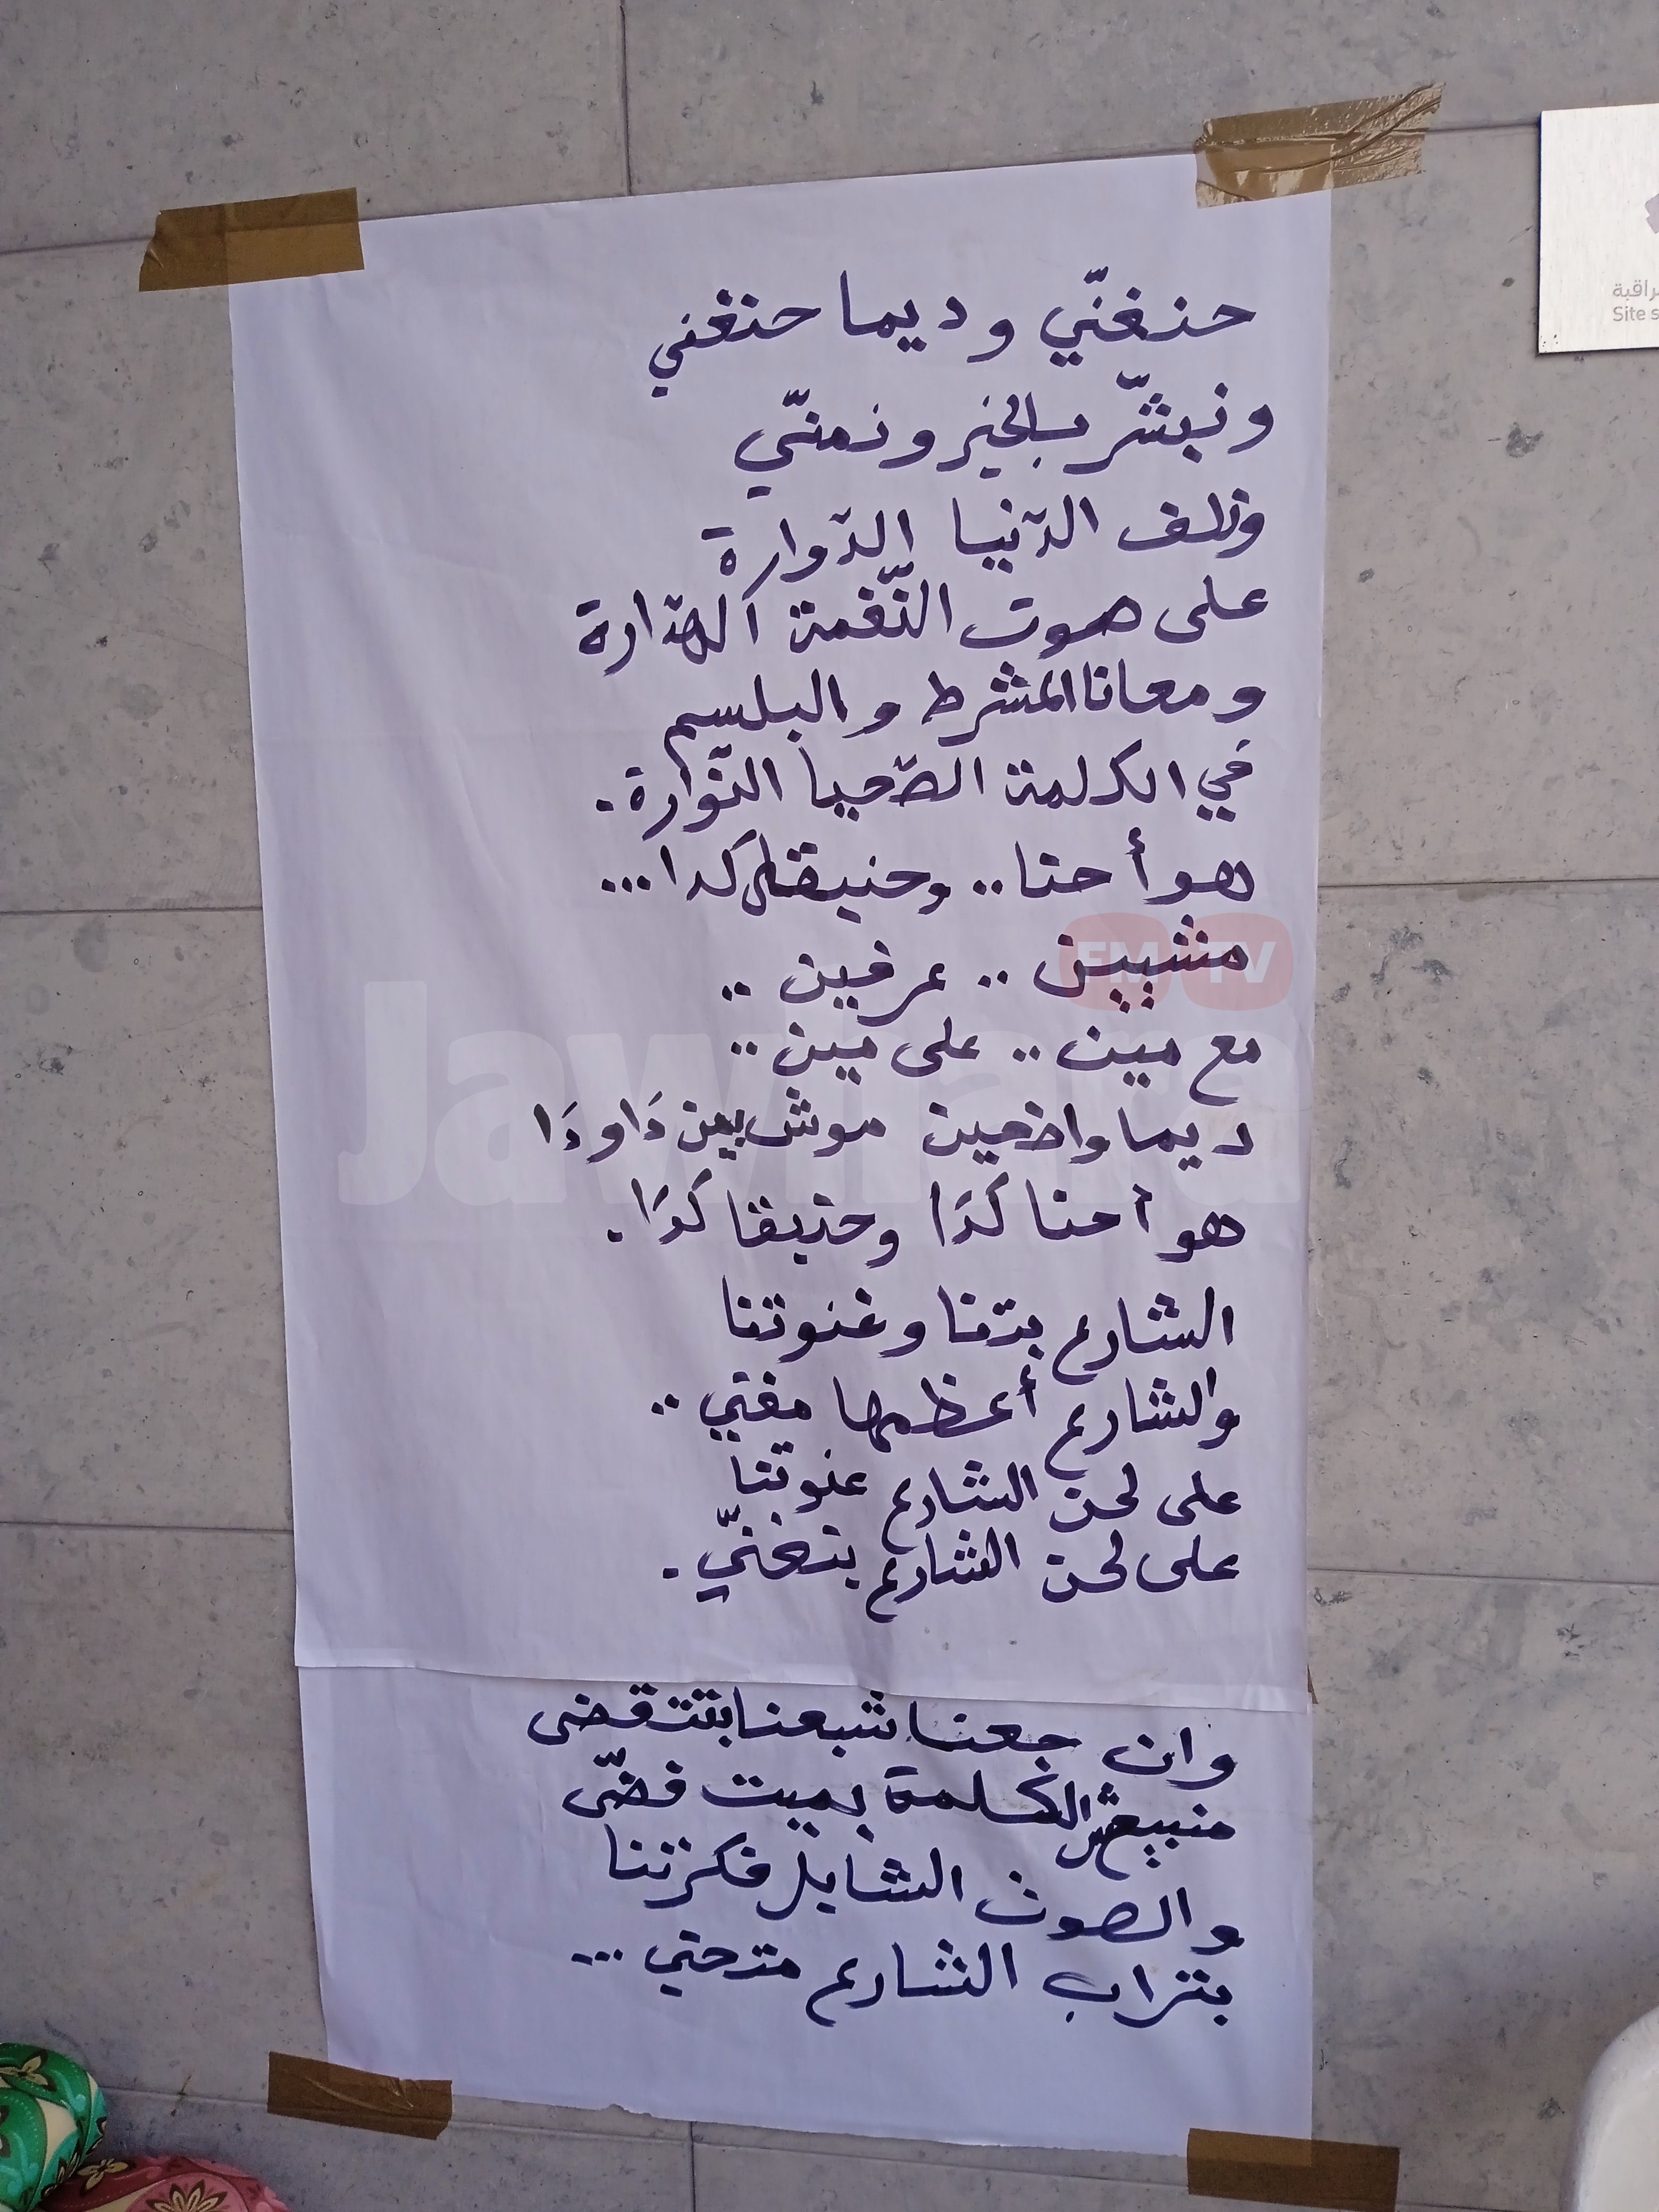 حنغنّي وديما حنغني
ونبشّر بالخير ونمنّي
ونلف الدّنيا الدّوارة
على صوت النّغمة الهدّارة
ومعانا المشرط والبلسم
في الكلمة الصّحيا النّوارة.
هو أحنا.. وحنبقى كدا...
مشيين .. عرفين ..
مع مين .. على مين ..
ديما واضحين موش بين دَا ودَا
هو أحنا كَدَا وحنبقا كَدَا.
الشارع بدّنا وغنوتنا
والشارع أعظمها مغني ..
على لحن الشارع غنوتنا
على لحن الشارع بنغنّي.
وان جعنا شبعنا بتتقضى
منبيعش الكلمة بميت فضّى
والصوت الشايل فكرتنا
بتراب الشارع متحني ...
راقبة
Site s
Jawhara
FM TV